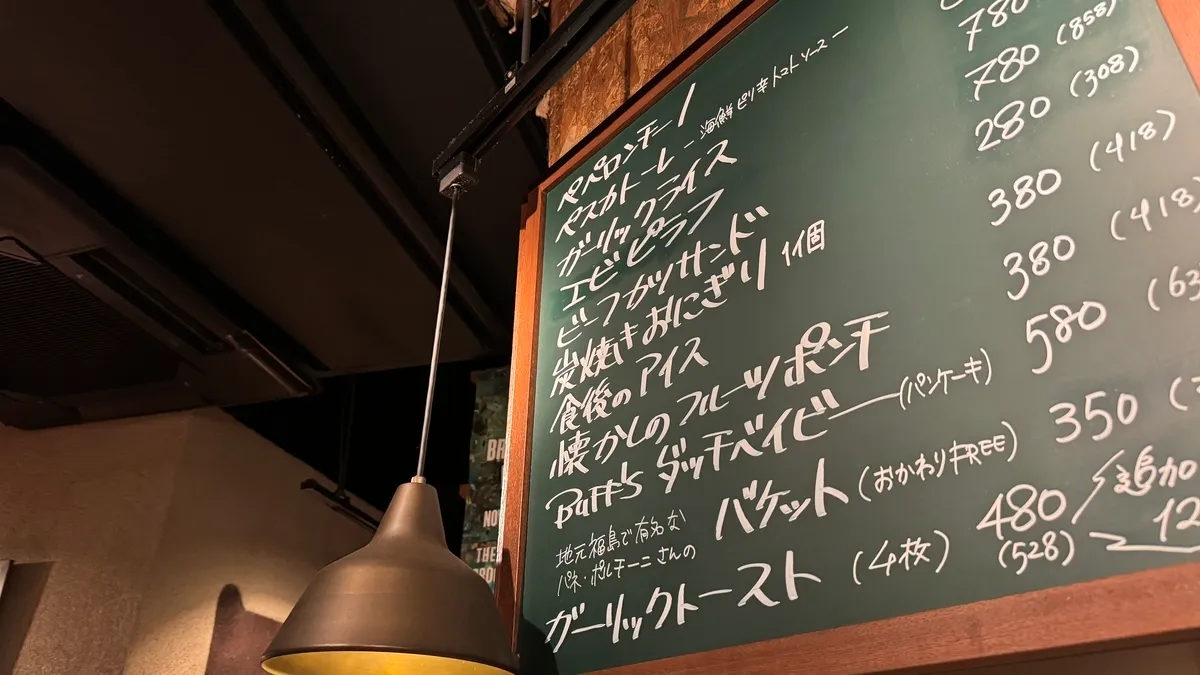 ペペロンチーノ
ペスカトーレ - 海鮮ピリ辛トマトソース -
ガーリックライス 780
エビピラフ 780 (858)
ビーフカツサンド
炭焼きおにぎり 1個 280 (308)
食後のアイス 380 (418)
懐かしのフルーツポンチ 380 (418)
Buff's ダッチベイビー (パンケーキ) 580
地元福島で有名な
パネ・ポルチーニさんの
バケット (おかわりFREE) 350
ガーリックトースト (4枚) 480 追加
(528) 12
BR
NO
THE